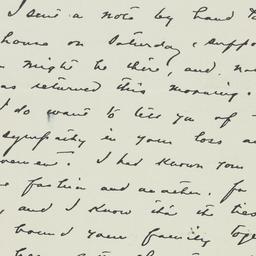 I sent a note by hand to
house on Saturday, suppo
might be there, and
as returned this morning.
I do want to tell you of
sympathy in your loss
I had known you
fashion and another, for
and I know that the ties
bound your family toge